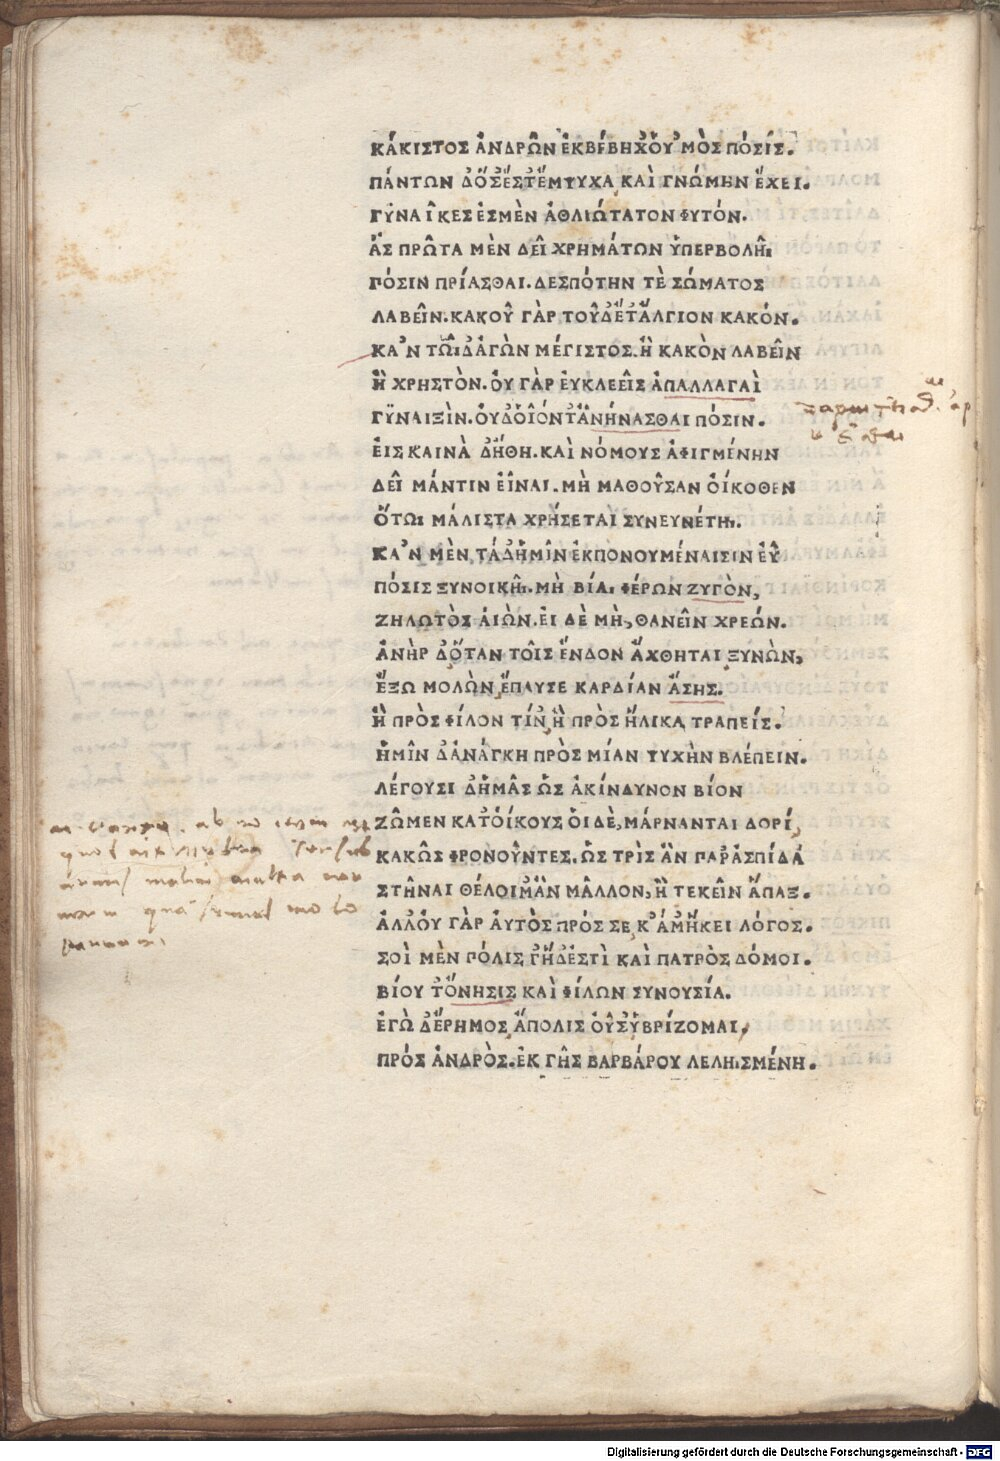 ΚΆΚΙΣΤΟΣ ἈΝΔΡΩ͂Ν ἘΚΒΈΒΗΧ᾽ ΟὙ᾽ΜῸΣ ΠΌΣΙΣ.
ΠΆΝΤΩΝ Δ᾽ ὍΣ᾽ ἜΣΤ᾽ ἜΜΨΥΧΑ ΚΑῚ ΓΝΏΜΗΝ ἜΧΕΙ.
ΓΥΝΑΙ͂ΚΕΣ ἘΣΜῈΝ ἈΘΛΙΏΤΑΤΟΝ ΦΥΤΌΝ.
ἋΣ ΠΡΩ͂ΤΑ ΜῈΝ ΔΕΙ͂ ΧΡΗΜΆΤΩΝ ὙΠΕΡΒΟΛΗ͂Ι
ΠΌΣΙΝ ΠΡΊΑΣΘΑΙ. ΔΕΣΠΌΤΗΝ ΤῈ ΣΏΜΑΤΟΣ
ΛΑΒΕΙ͂Ν. ΚΑΚΟΥ͂ ΓᾺΡ ΤΟΥ͂Δ᾽ ἜΤ᾽ ἌΛΓΙΟΝ ΚΑΚΌΝ.
ΚΑ᾽Ν ΤΩ͂ΙΔ᾽ ἈΓῺΝ ΜΈΓΙΣΤΟΣ. Ἢ ΚΑΚῸΝ ΛΑΒΕΙ͂Ν
Ἢ ΧΡΗΣΤῸΝ. ΟΥ̓ ΓᾺΡ ΕΥ̓ΚΛΕΕΙ͂Σ ἈΠΑΛΛΑΓΑῚ
ΓΥΝΑΙΞῚΝ. ΟΥ̓Δ᾽ ΟἿΟΝΤ᾽ ἈΝΉΝΑΣΘΑΙ ΠΌΣΙΝ.
ΕἸΣ ΚΑΙΝᾺ Δ᾽ ἬΘΗ. ΚΑῚ ΝΌΜΟΥΣ ἈΦΙΓΜΈΝΗΝ
ΔΕΙ͂ ΜΆΝΤΙΝ ΕἾΝΑΙ. ΜῊ ΜΑΘΟΥ͂ΣΑΝ ΟἼΚΟΘΕΝ
ὍΤΩΙ ΜΆΛΙΣΤΑ ΧΡΉΣΕΤΑΙ ΣΥΝΕΥΝΈΤΗΙ.
ΚΑ᾽Ν ΜῈΝ ΤΆΔ᾽ ἩΜΙ͂Ν ἘΚΠΟΝΟΥΜΈΝΑΙΣΙΝ ΕΥ̓͂
ΠΌΣΙΣ ΞΥΝΟΙΚΗ͂Ι. ΜῊ ΒΊΑΙ ΦΈΡΩΝ ΖΥΓῸΝ,
ΖΗΛΩΤῸΣ ἈΙῺΝ. ΕἸ ΔῈ ΜῊ, ΘΑΝΕΙ͂Ν ΧΡΕΏΝ.
ἈΝῊΡ Δ᾽ ὍΤΑΝ ΤΟΙ͂Σ ἜΝΔΟΝ ἌΧΘΗΤΑΙ ΞΥΝῺΝ,
ἜΞΩ ΜΟΛῺΝ ἜΠΑΥΣΕ ΚΑΡΔΊΑΝ ἌΣΗΣ.
Ἢ ΠΡῸΣ ΦΊΛΟΝ ΤΊΝ᾽ Ἢ ΠΡῸΣ ἭΛΙΚΑ ΤΡΑΠΕΊΣ.
ἩΜΙ͂Ν Δ᾽ ἈΝΆΓΚΗ ΠΡῸΣ ΜΊΑΝ ΨΥΧῊΝ ΒΛΈΠΕΙΝ.
ΛΈΓΟΥΣΙ Δ᾽ ἩΜΑ͂Σ ὩΣ ἈΚΊΝΔΥΝΟΝ ΒΊΟΝ
ΖΩ͂ΜΕΝ ΚΑΤ᾽ ΟἼΚΟΥΣ ΟἹ ΔῈ, ΜΆΡΝΑΝΤΑΙ ΔΟΡΊ,
ΚΑΚΩ͂Σ ΦΡΟΝΟΥ͂ΝΤΕΣ. ὩΣ ΤΡῚΣ ἊΝ ΠΑΡ᾽ ἈΣΠΊΔΑ
ΣΤΗ͂ΝΑΙ ΘΈΛΟΙΜ᾽ ἊΝ ΜΑ͂ΛΛΟΝ, Ἢ ΤΕΚΕΙ͂Ν ἍΠΑΞ.
ἈΛΛ᾽ ΟΥ̓ ΓᾺΡ ΑΥ̓ΤῸΣ ΠΡΌΣ ΣΕ Κ᾽ ἈΜ᾽ ἭΚΕΙ ΛΌΓΟΣ.
ΣΟῚ ΜῈΝ ΠΌΛΙΣ Γ᾽ ἭΔ᾽ ἘΣΤῚ ΚΑῚ ΠΑΤΡῸΣ ΔΌΜΟΙ.
ΒΊΟΥ Τ᾽ ὌΝΗΣΙΣ ΚΑῚ ΦΊΛΩΝ ΣΥΝΟΥΣΊΑ.
ἘΓῺ Δ᾽ ἜΡΗΜΟΣ ἌΠΟΛΙΣ ΟΥ̓͂Σ᾽ ὙΒΡΊΖΟΜΑΙ,
ΠΡΌΣ ἈΝΔΡῸΣ. ἘΚ ΓΗ͂Σ ΒΑΡΒΆΡΟΥ ΛΕΛΗΙΣΜΈΝΗ.
Digitalisierung gefördert durch die Deutsche Forschungsgemeinschaft - DFG